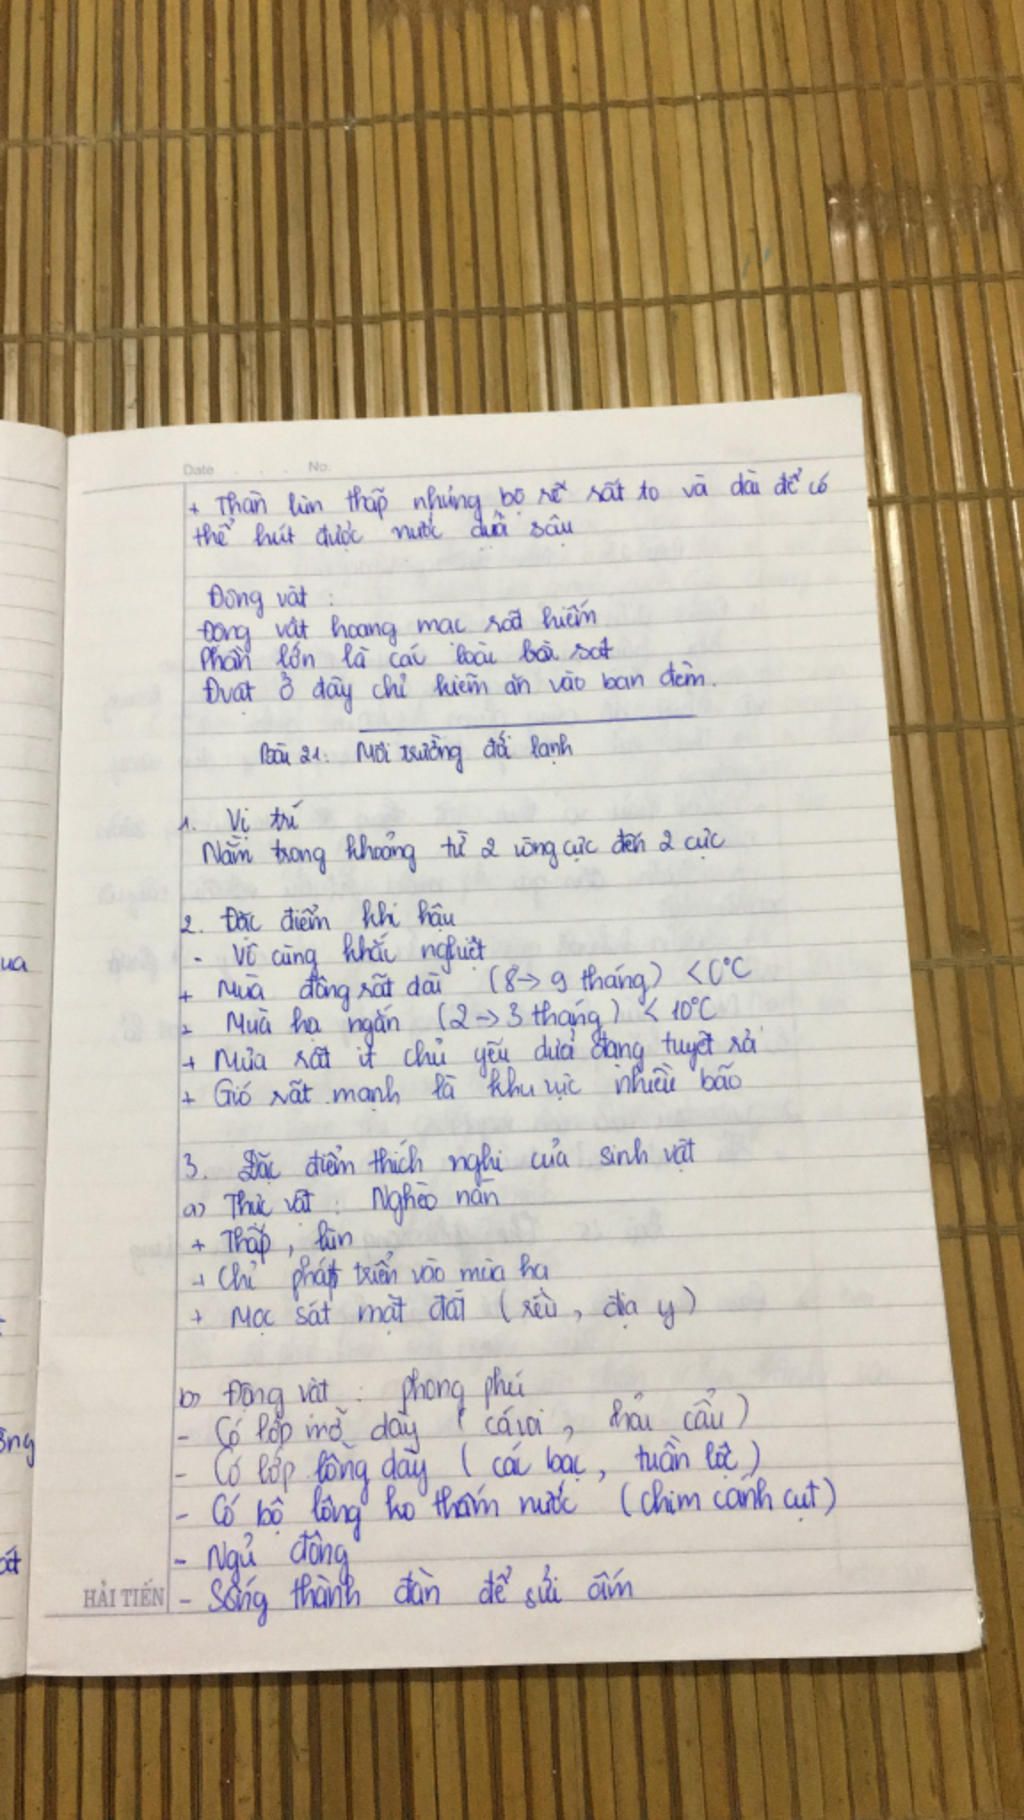 Date No.
+ Thân lùn thấp nhưng bộ rễ rất to và dài để có
thể hút được nước dưới sâu
Động vật :
Động vật hoang mạc rất hiếm
Phần lớn là các loài bò sát
Đvật ở đây chỉ kiếm ăn vào ban đêm.
Bài 21: Môi trường đới lạnh
1. Vị trí
Nằm trong khoảng từ 2 vòng cực đến 2 cực
2. Đặc điểm khí hậu
- Vô cùng khắc nghiệt
+ Mùa đông rất dài (8 -> 9 tháng) < 0°C
+ Mùa hạ ngắn (2 -> 3 tháng) < 10°C
+ Mưa rất ít chủ yếu dưới dạng tuyết rơi
+ Gió rất mạnh là khu vực nhiều bão
3. Đặc điểm thích nghi của sinh vật
a) Thực vật : Nghèo nàn
+ Thấp, lùn
+ Chỉ phát triển vào mùa hạ
+ Mọc sát mặt đất (rêu, địa y)
b) Động vật : phong phú
- Có lớp mỡ dày ( cá voi, hải cẩu)
- Có lớp lông dày ( cáo bạc, tuần lộc)
- Có bộ lông ko thấm nước (chim cánh cụt)
- Ngủ đông
- Sống thành đàn để sưởi ấm
HẢI TIẾN